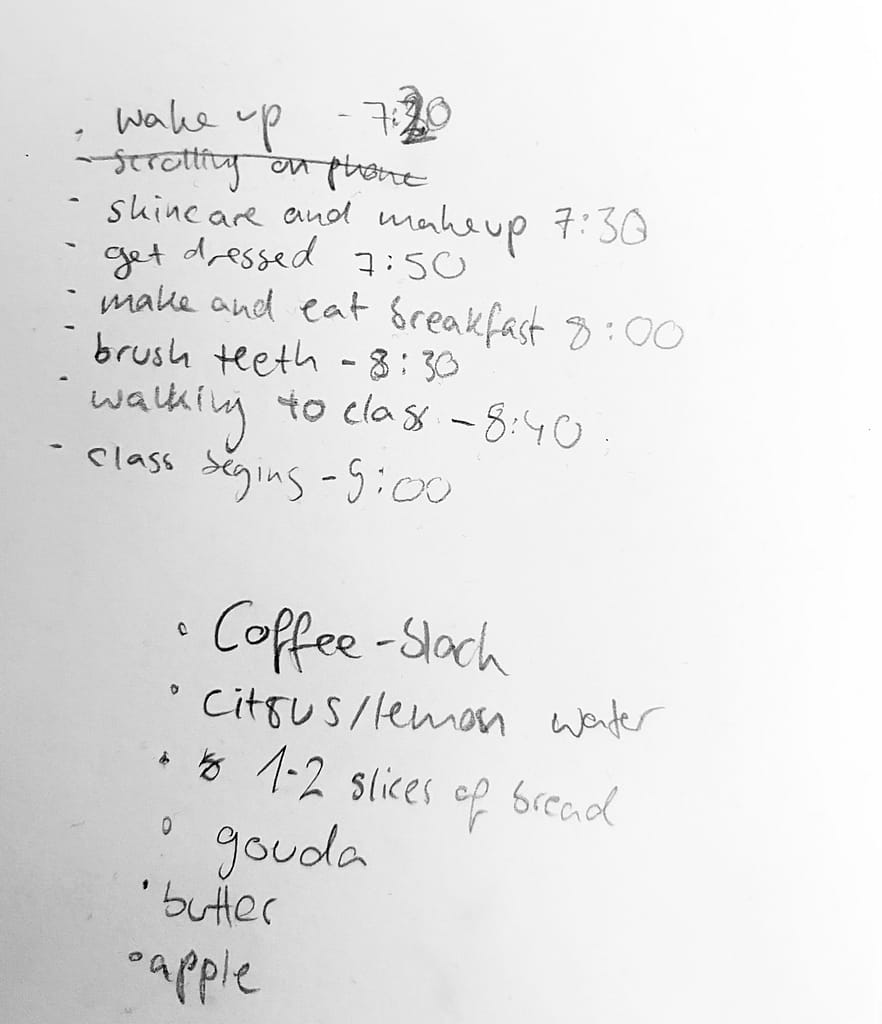 . wake up - 7:20
- scrolling on phone
- skincare and makeup 7:30
- get dressed 7:50
- make and eat breakfast 8:00
- brush teeth - 8:30
- walking to class - 8:40
- class begins - 9:00
• Coffee - black
• citrus/lemon water
• 1-2 slices of bread
• gouda
• butter
• apple